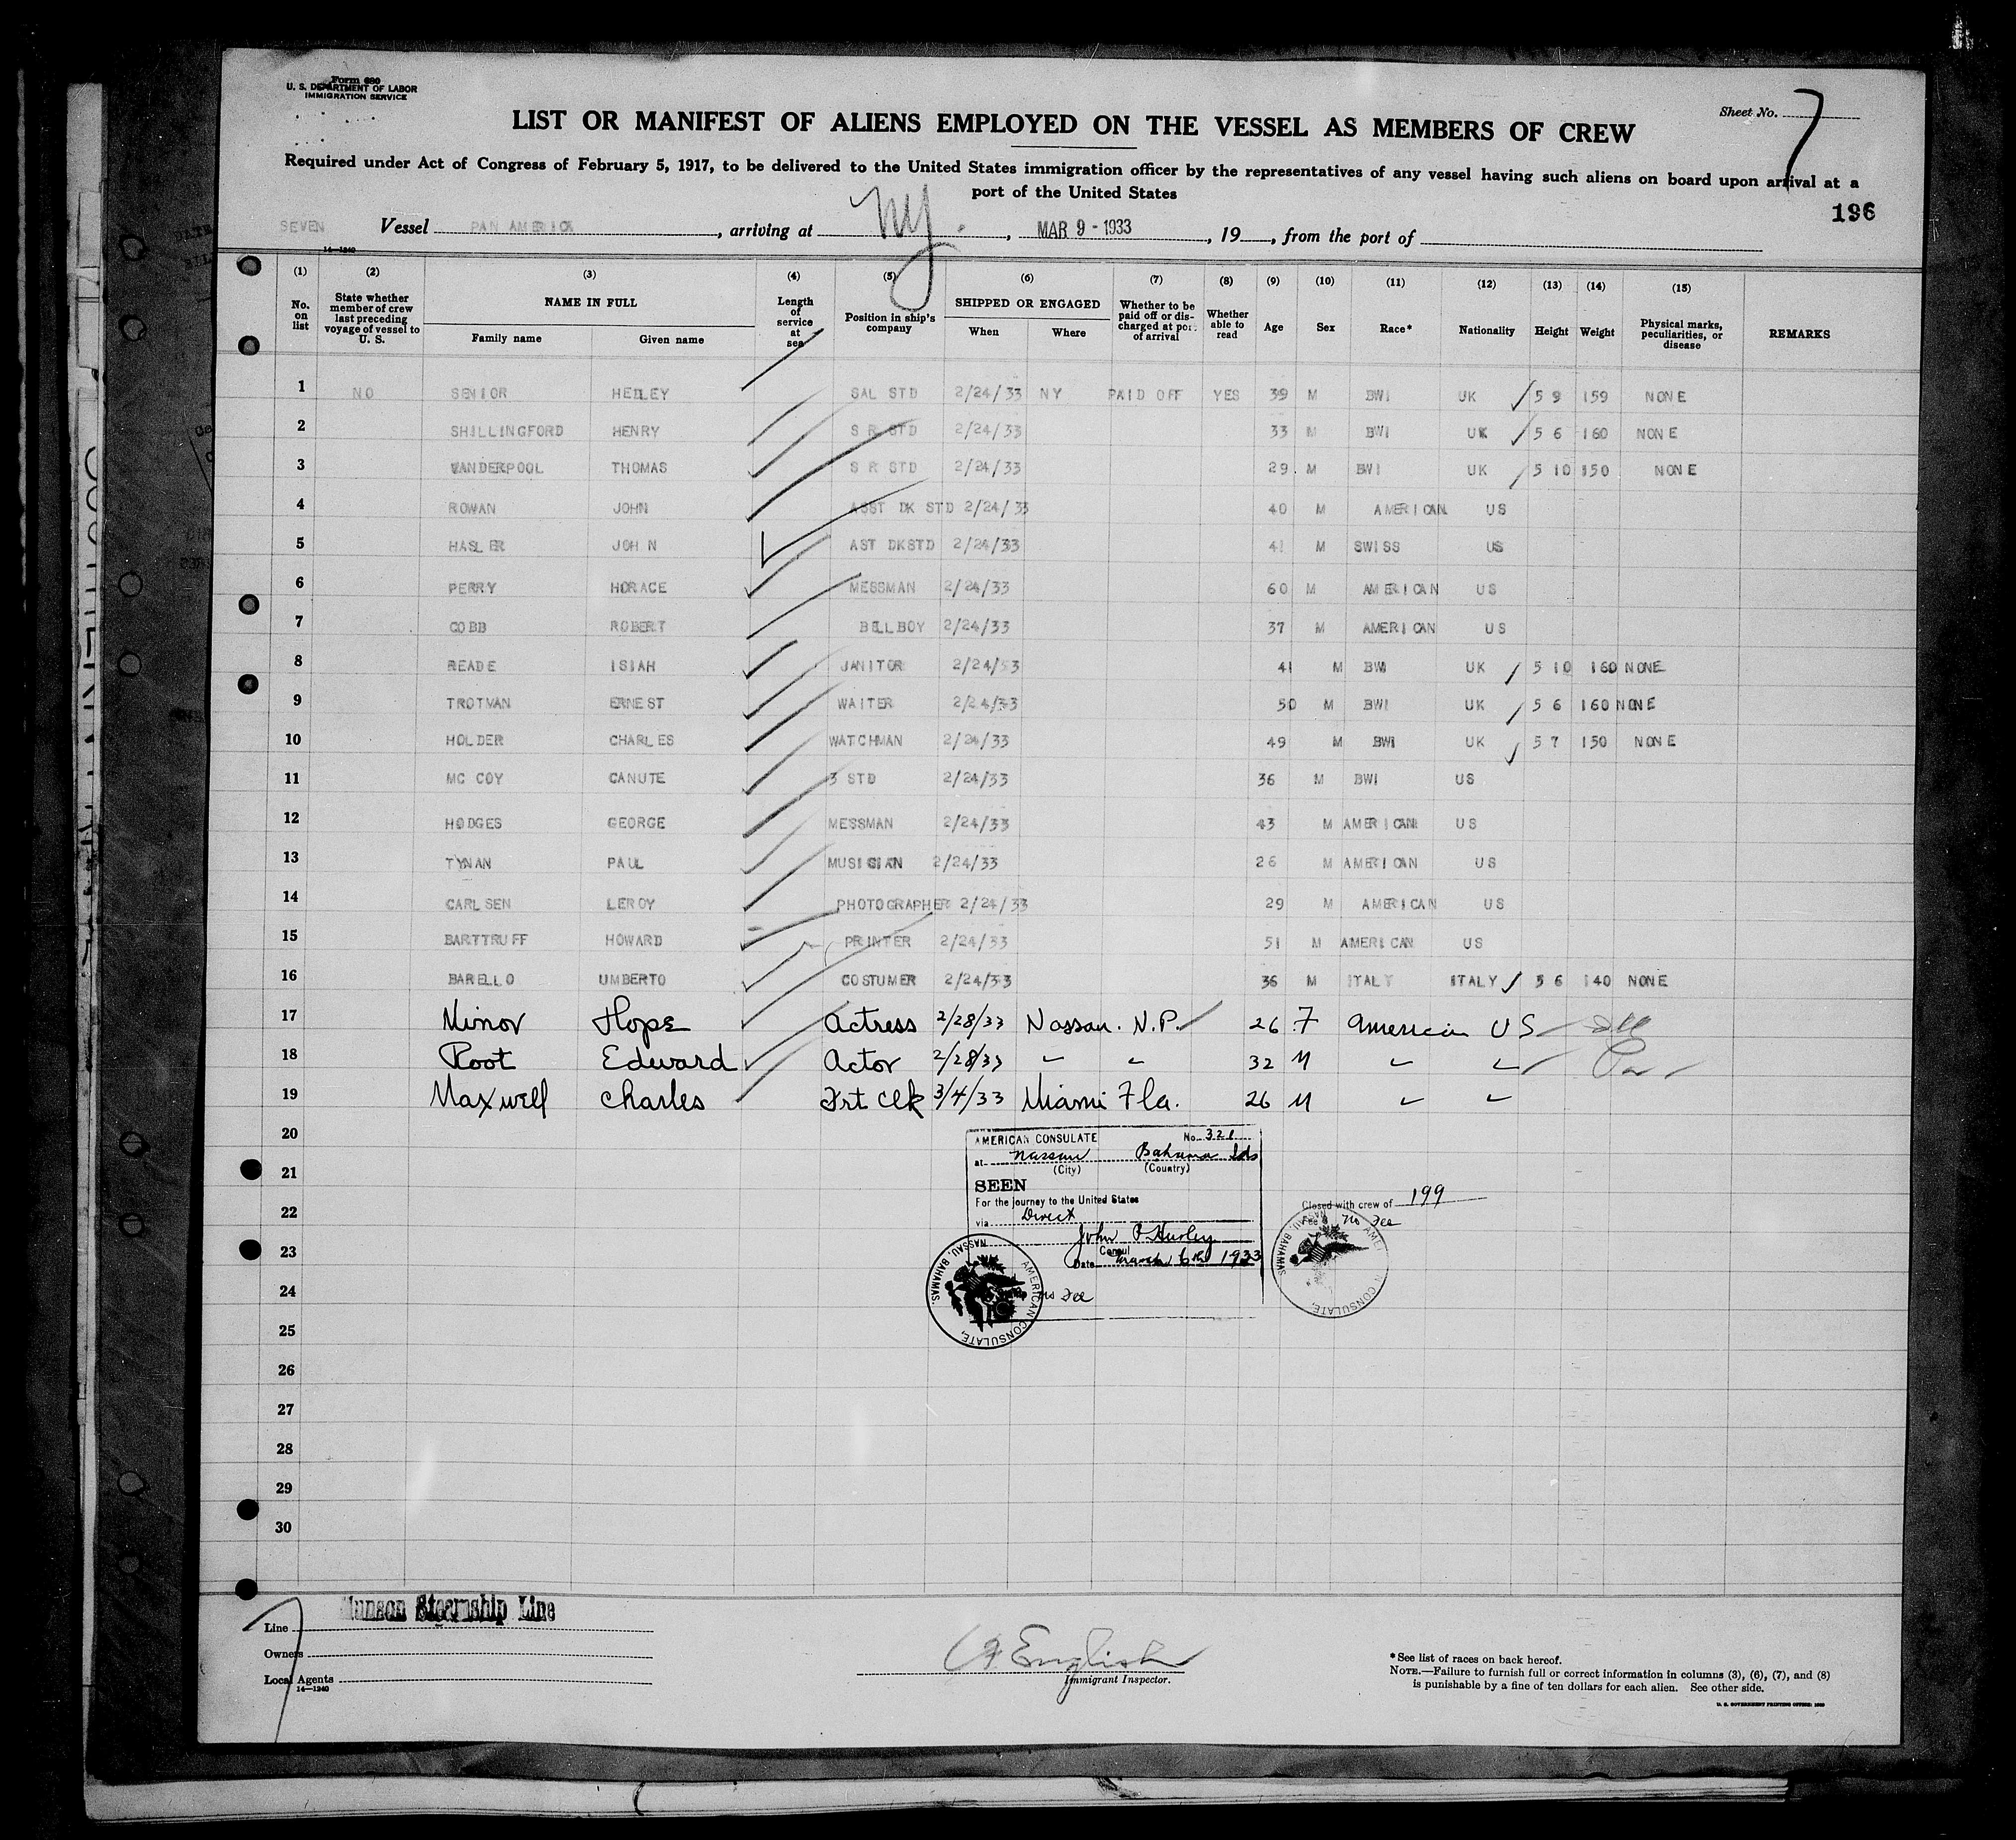 Form 680
U. S. DEPARTMENT OF LABOR
IMMIGRATION SERVICE
Sheet No. 7
LIST OR MANIFEST OF ALIENS EMPLOYED ON THE VESSEL AS MEMBERS OF CREW
Required under Act of Congress of February 5, 1917, to be delivered to the United States immigration officer by the representatives of any vessel having such aliens on board upon arrival at a
port of the United States
196
SEVEN Vessel PAN AMERICA, arriving at NY., MAR 9 - 1933, 19, from the port of
14—1240
(1) (2) (3) (4) (5) (6) (7) (8) (9) (10) (11) (12) (13) (14) (15)
No. on list State whether member of crew last preceding voyage of vessel to U. S. NAME IN FULL Family name Given name Length of service at sea Position in ship's company SHIPPED OR ENGAGED When Where Whether to be paid off or discharged at port of arrival Whether able to read Age Sex Race* Nationality Height Weight Physical marks, peculiarities, or disease REMARKS
1 NO SENIOR HEDLEY SAL STD 2/24/33 NY PAID OFF YES 39 M BWI UK 5 9 159 NONE
2 SHILLINGFORD HENRY S R STD 2/24/33 33 M BWI UK 5 6 160 NONE
3 VANDERPOOL THOMAS S R STD 2/24/33 29 M BWI UK 5 10 150 NONE
4 ROWAN JOHN ASST DK STD 2/24/33 40 M AMERICAN US
5 HASLER JOHN AST DKSTD 2/24/33 41 M SWISS US
6 PERRY HORACE MESSMAN 2/24/33 60 M AMERICAN US
7 COBB ROBERT BELLBOY 2/24/33 37 M AMERICAN US
8 READE ISIAH JANITOR 2/24/33 41 M BWI UK 5 10 160 NONE
9 TROTMAN ERNEST WAITER 2/24/33 50 M BWI UK 5 6 160 NONE
10 HOLDER CHARLES WATCHMAN 2/24/33 49 M BWI UK 5 7 150 NONE
11 MC COY CANUTE 3 STD 2/24/33 36 M BWI US
12 HODGES GEORGE MESSMAN 2/24/33 43 M AMERICAN US
13 TYNAN PAUL MUSICIAN 2/24/33 26 M AMERICAN US
14 CARLSEN LEROY PHOTOGRAPHER 2/24/33 29 M AMERICAN US
15 BARTTRUFF HOWARD PRINTER 2/24/33 51 M AMERICAN US
16 BARELLO UMBERTO COSTUMER 2/24/33 36 M ITALY ITALY 5 6 140 NONE
17 Minor Hope Actress 2/28/33 Nassau. N.P. 26 F American US
18 Root Edward Actor 2/28/33 " " 32 M " "
19 Maxwell Charles Frt Clk 3/4/33 Miami Fla. 26 M " "
20
21
22
23
24
25
26
27
28
29
30
AMERICAN CONSULATE No. 321
at Nassau Bahama Ids
(City) (Country)
SEEN
For the journey to the United States
via Direct
John P Hurley
Consul
Date March 6th 1933
no Fee
AMERICAN CONSULATE, NASSAU, BAHAMAS.
Closed with crew of 199
Fee $ no Fee
AMERI N CONSULATE, NASSAU, BAHAMAS
Line Munson Steamship Line
Owners
Local Agents
14—1240
English
Immigrant Inspector.
* See list of races on back hereof.
NOTE.—Failure to furnish full or correct information in columns (3), (6), (7), and (8)
is punishable by a fine of ten dollars for each alien. See other side.
U. S. GOVERNMENT PRINTING OFFICE: